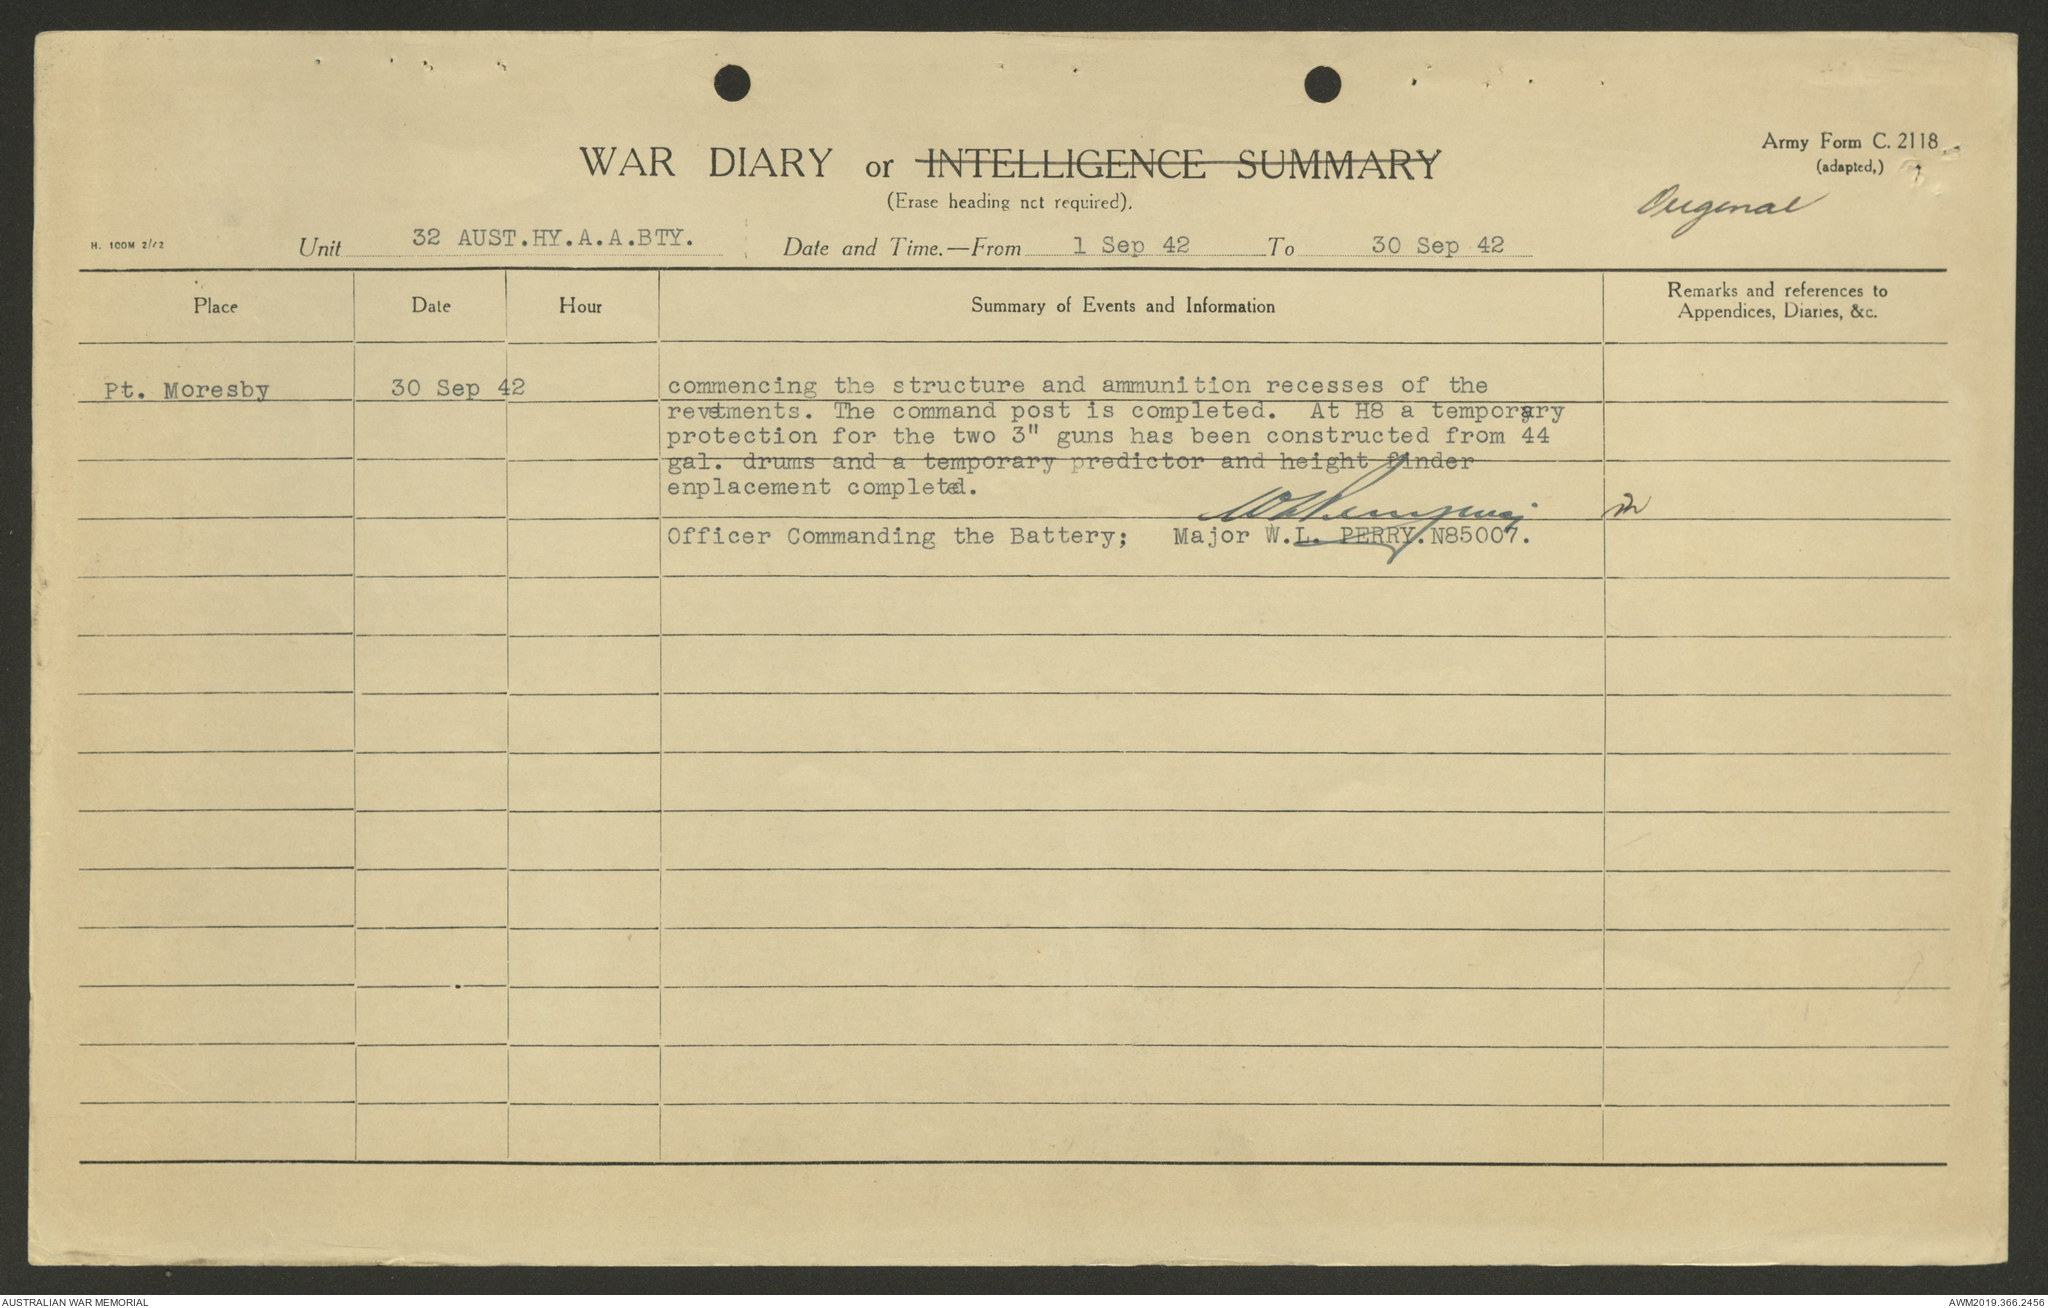 Army Form C. 2118.
(adapted,)
WAR DIARY or INTELLIGENCE SUMMARY
(Erase heading not required).
Original
H. 100M 2/42
Unit 32 AUST.HY.A.A.BTY. Date and Time.—From 1 Sep 42 To 30 Sep 42
Place Date Hour Summary of Events and Information Remarks and references to
Appendices, Diaries, &c.
Pt. Moresby 30 Sep 42 commencing the structure and ammunition recesses of the
revetments. The command post is completed. At H8 a temporary
protection for the two 3" guns has been constructed from 44
gal. drums and a temporary predictor and height finder
enplacement completed.
Officer Commanding the Battery; Major W.L. PERRY.N85007.
AUSTRALIAN WAR MEMORIAL AWM2019.366.2456